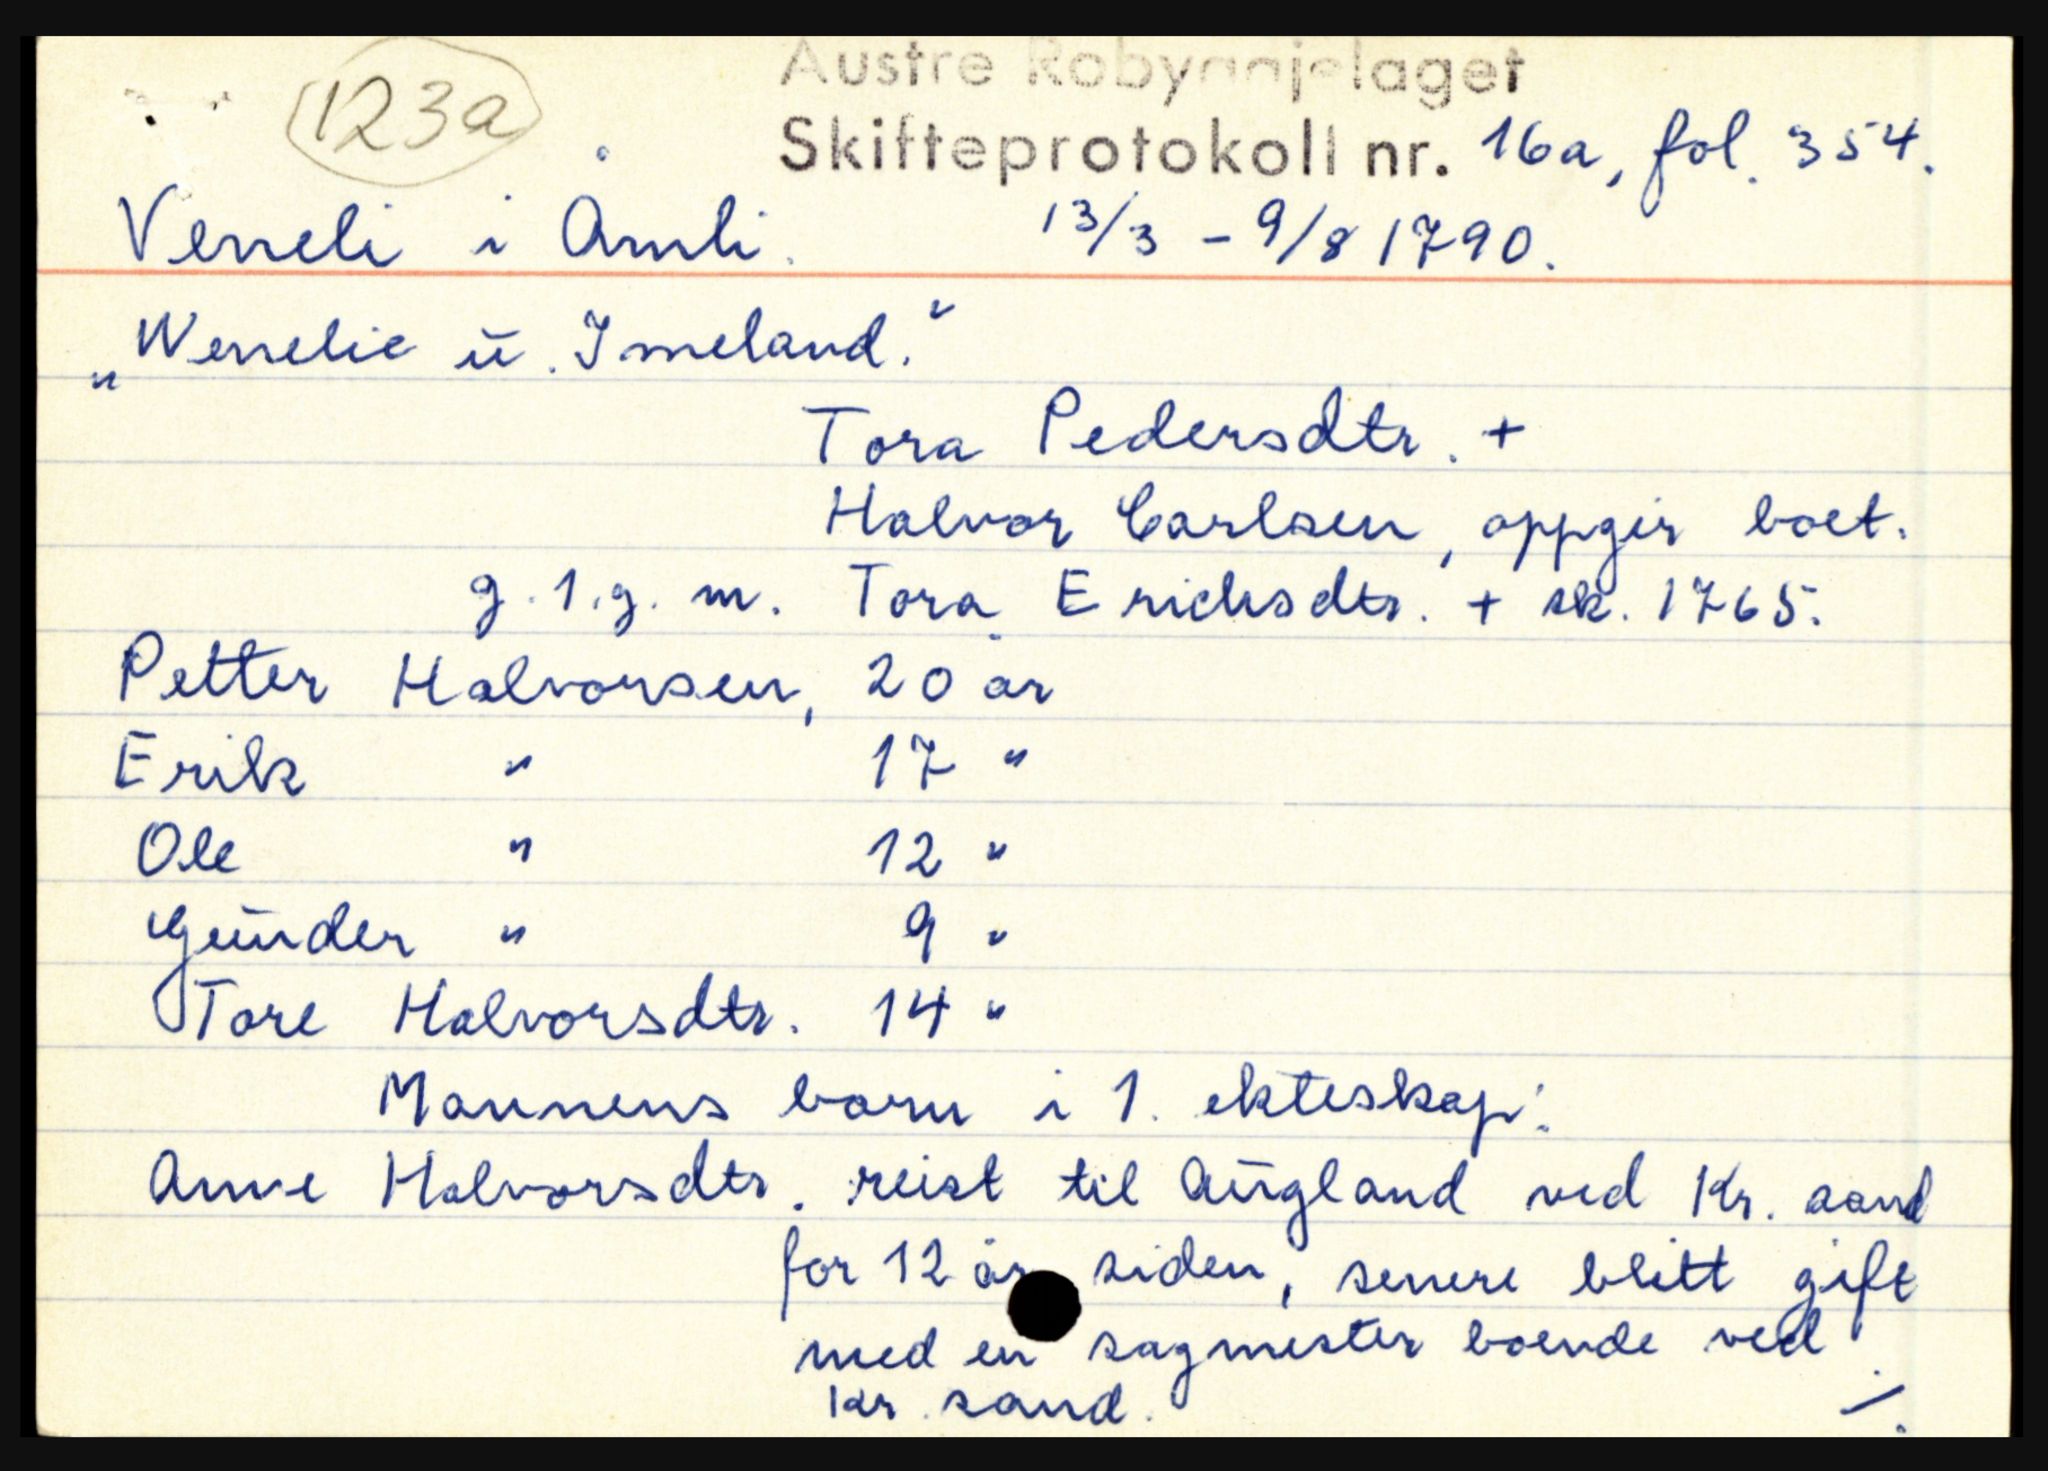 123a
Austre Robygdjelaget
Skifteprotokoll nr. 16a, fol. 354.
Veneli i Åmli. 13/3 - 9/8 1790.
"Wenelie u. Imeland."
Tora Pedersdtr. +
Halvor Carlsen, oppgir boet.
g. 1. g. m. Tora Erichsdtr. + sk. 1765.
Petter Halvorsen, 20 år
Erik " 17 "
Ole " 12 "
Gunder " 9 "
Tore Halvorsdtr. 14 "
Mannens barn i 1. ekteskap:
Anne Halvorsdtr. reist til Augland ved Kr. sand
for 12 år siden, senere blitt gift
med en sagmester boende ved
Kr. sand.